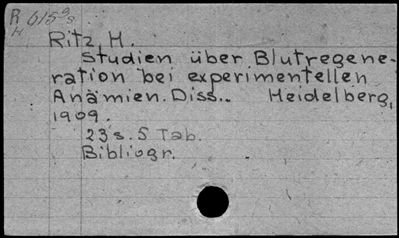 R 615
H
Ritz, H.
Studien über Blutregene-
ration bei experimentellen
Anämien. Diss.. Heidelberg,
1909.
23 s. 5 Tab.
Bibliogr.